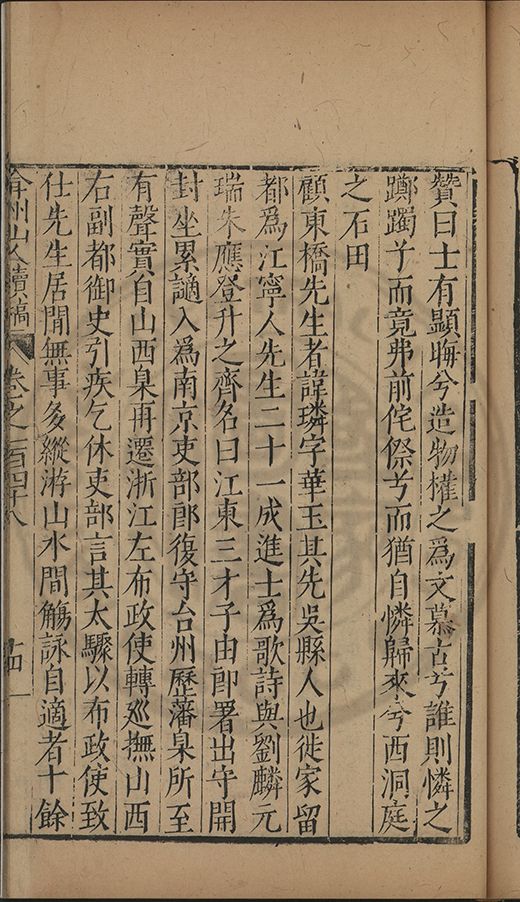 贊曰士有顯晦兮造物權之爲文慕古兮誰則憐之
躑躅兮而竟弗前侘傺兮而猶自憐歸來兮西洞庭
之石田
顧東橋先生者諱璘字華玉其先吳縣人也徙家留
都爲江寧人先生二十一成進士爲歌詩與劉麟元
瑞朱應登升之齊名曰江東三才子由郎署出守開
封坐累謫入爲南京吏部郎復守台州歷藩臬所至
有聲實自山西臬再遷浙江左布政使轉巡撫山西
右副都御史引疾乞休吏部言其太驟以布政使致
仕先生居閒無事多縱游山水間觴詠自適者十餘
弇州山人續稿 卷之一百四十八 十四